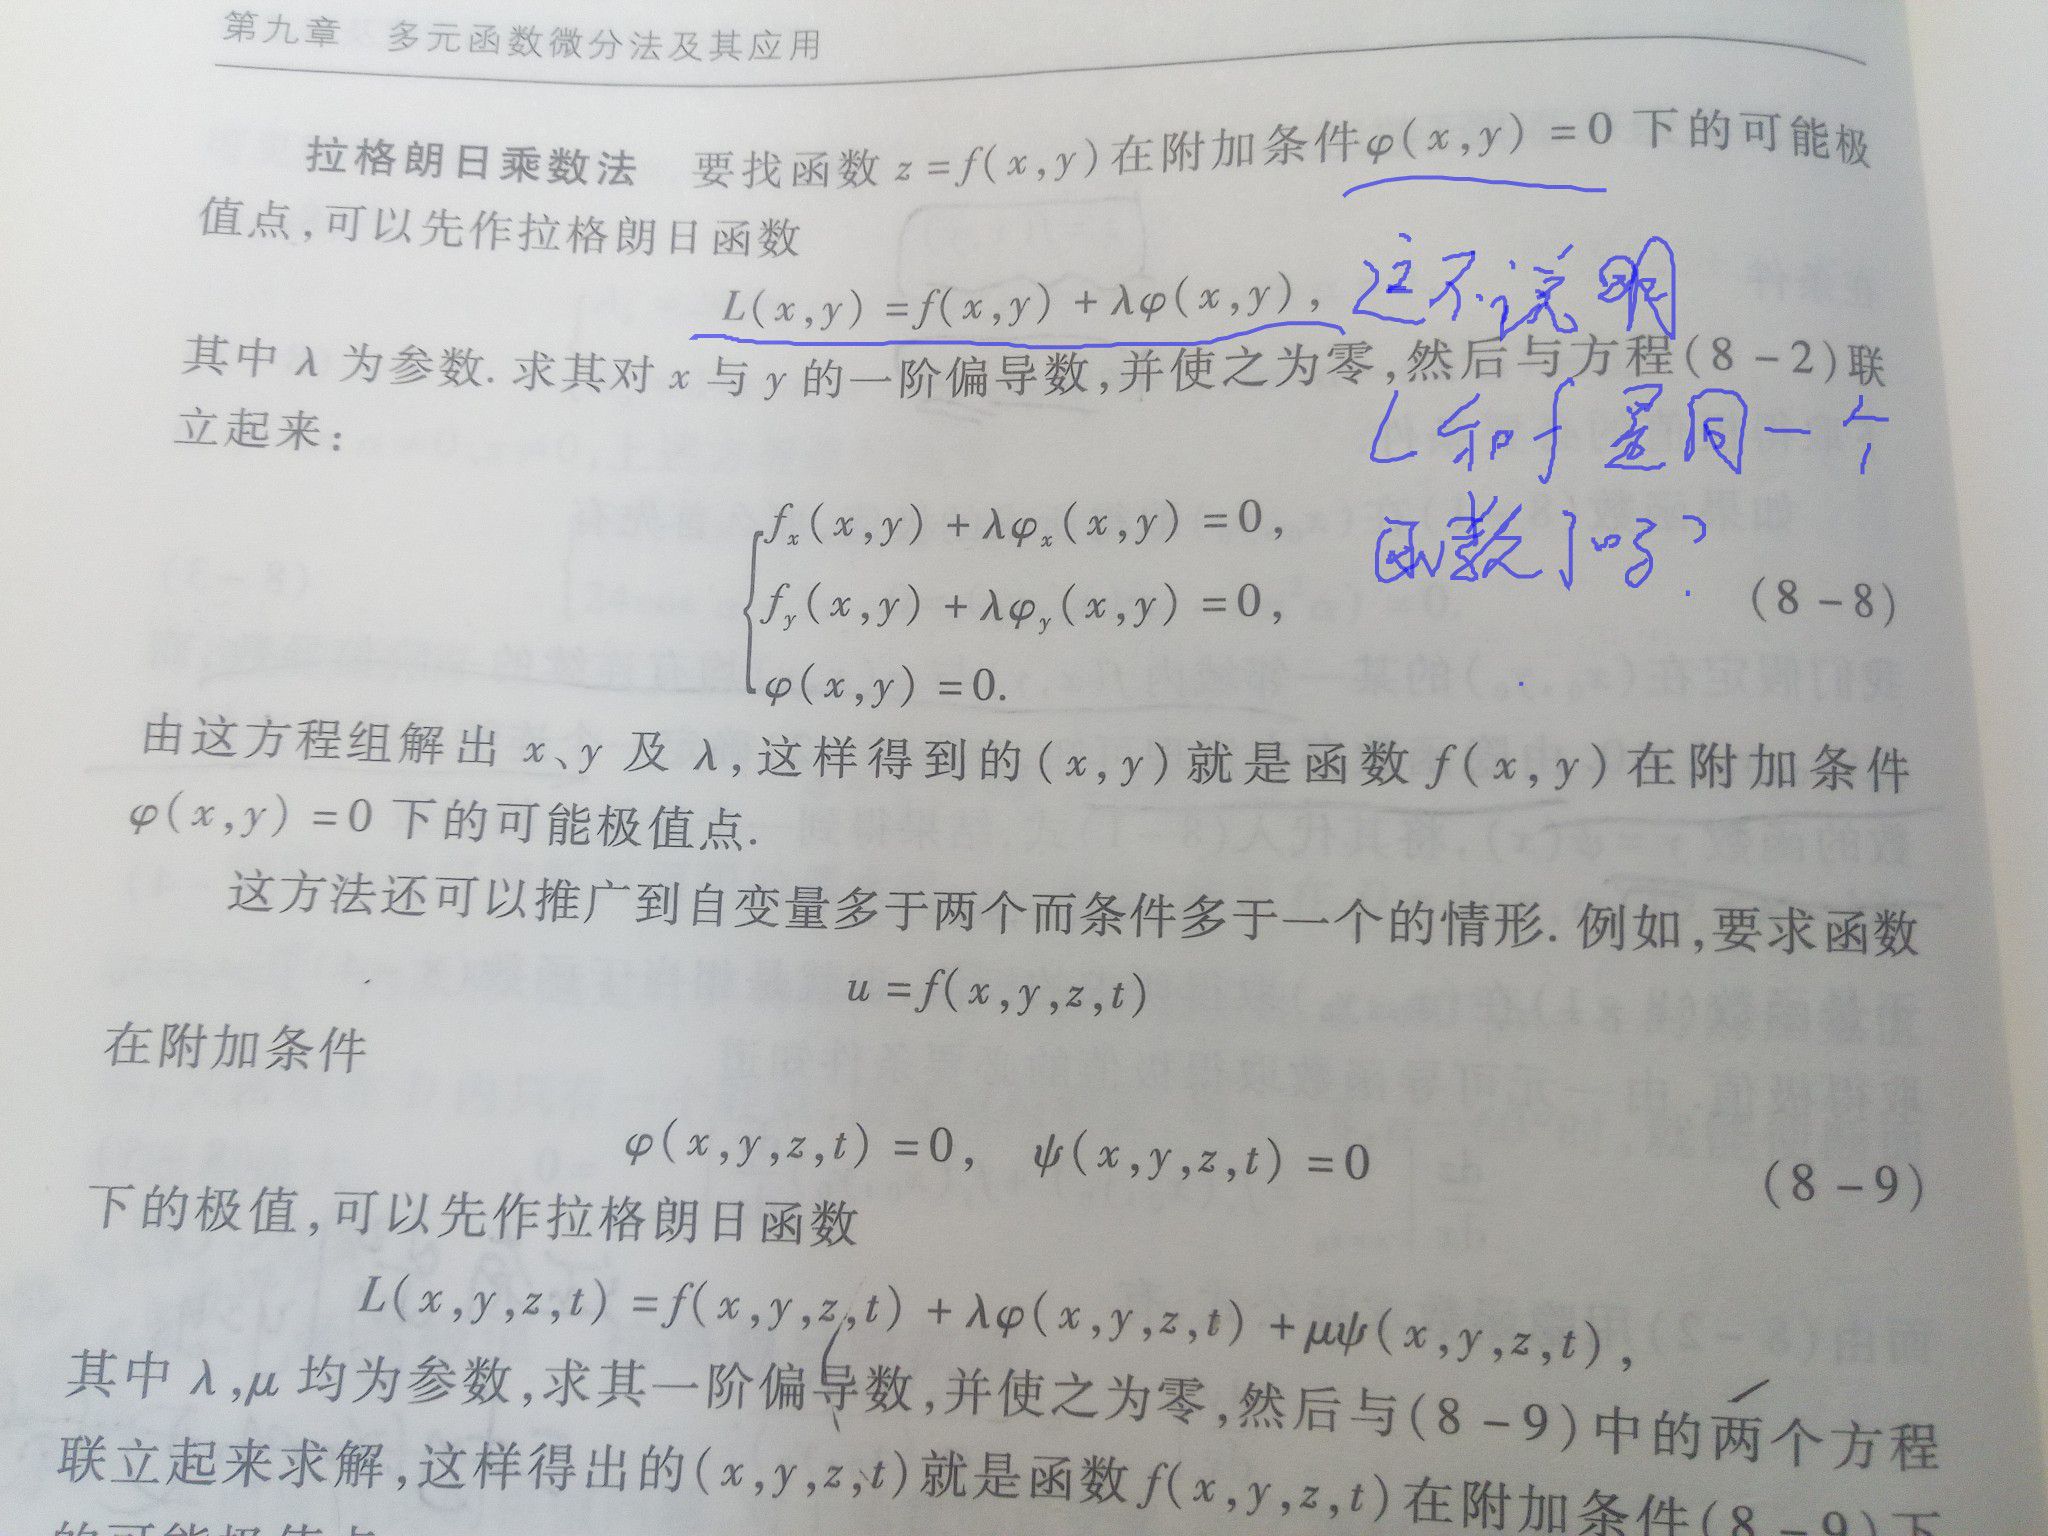 第九章 多元函数微分法及其应用
拉格朗日乘数法 要找函数 z=f(x,y)在附加条件φ(x,y)=0 下的可能极
值点,可以先作拉格朗日函数
L(x,y)=f(x,y)+λφ(x,y),
这不说明
其中 λ 为参数.求其对 x 与 y 的一阶偏导数,并使之为零,然后与方程(8-2)联
立起来:
L和f是同一个
函数了吗?
f_x(x,y)+λφ_x(x,y)=0,
f_y(x,y)+λφ_y(x,y)=0, (8-8)
φ(x,y)=0.
由这方程组解出 x、y 及 λ,这样得到的(x,y)就是函数 f(x,y)在附加条件
φ(x,y)=0 下的可能极值点.
这方法还可以推广到自变量多于两个而条件多于一个的情形.例如,要求函数
u=f(x,y,z,t)
在附加条件
φ(x,y,z,t)=0, ψ(x,y,z,t)=0 (8-9)
下的极值,可以先作拉格朗日函数
L(x,y,z,t)=f(x,y,z,t)+λφ(x,y,z,t)+μψ(x,y,z,t),
其中 λ,μ 均为参数,求其一阶偏导数,并使之为零,然后与(8-9)中的两个方程
联立起来求解,这样得出的(x,y,z,t)就是函数 f(x,y,z,t)在附加条件(8-9)下
的可能极值点